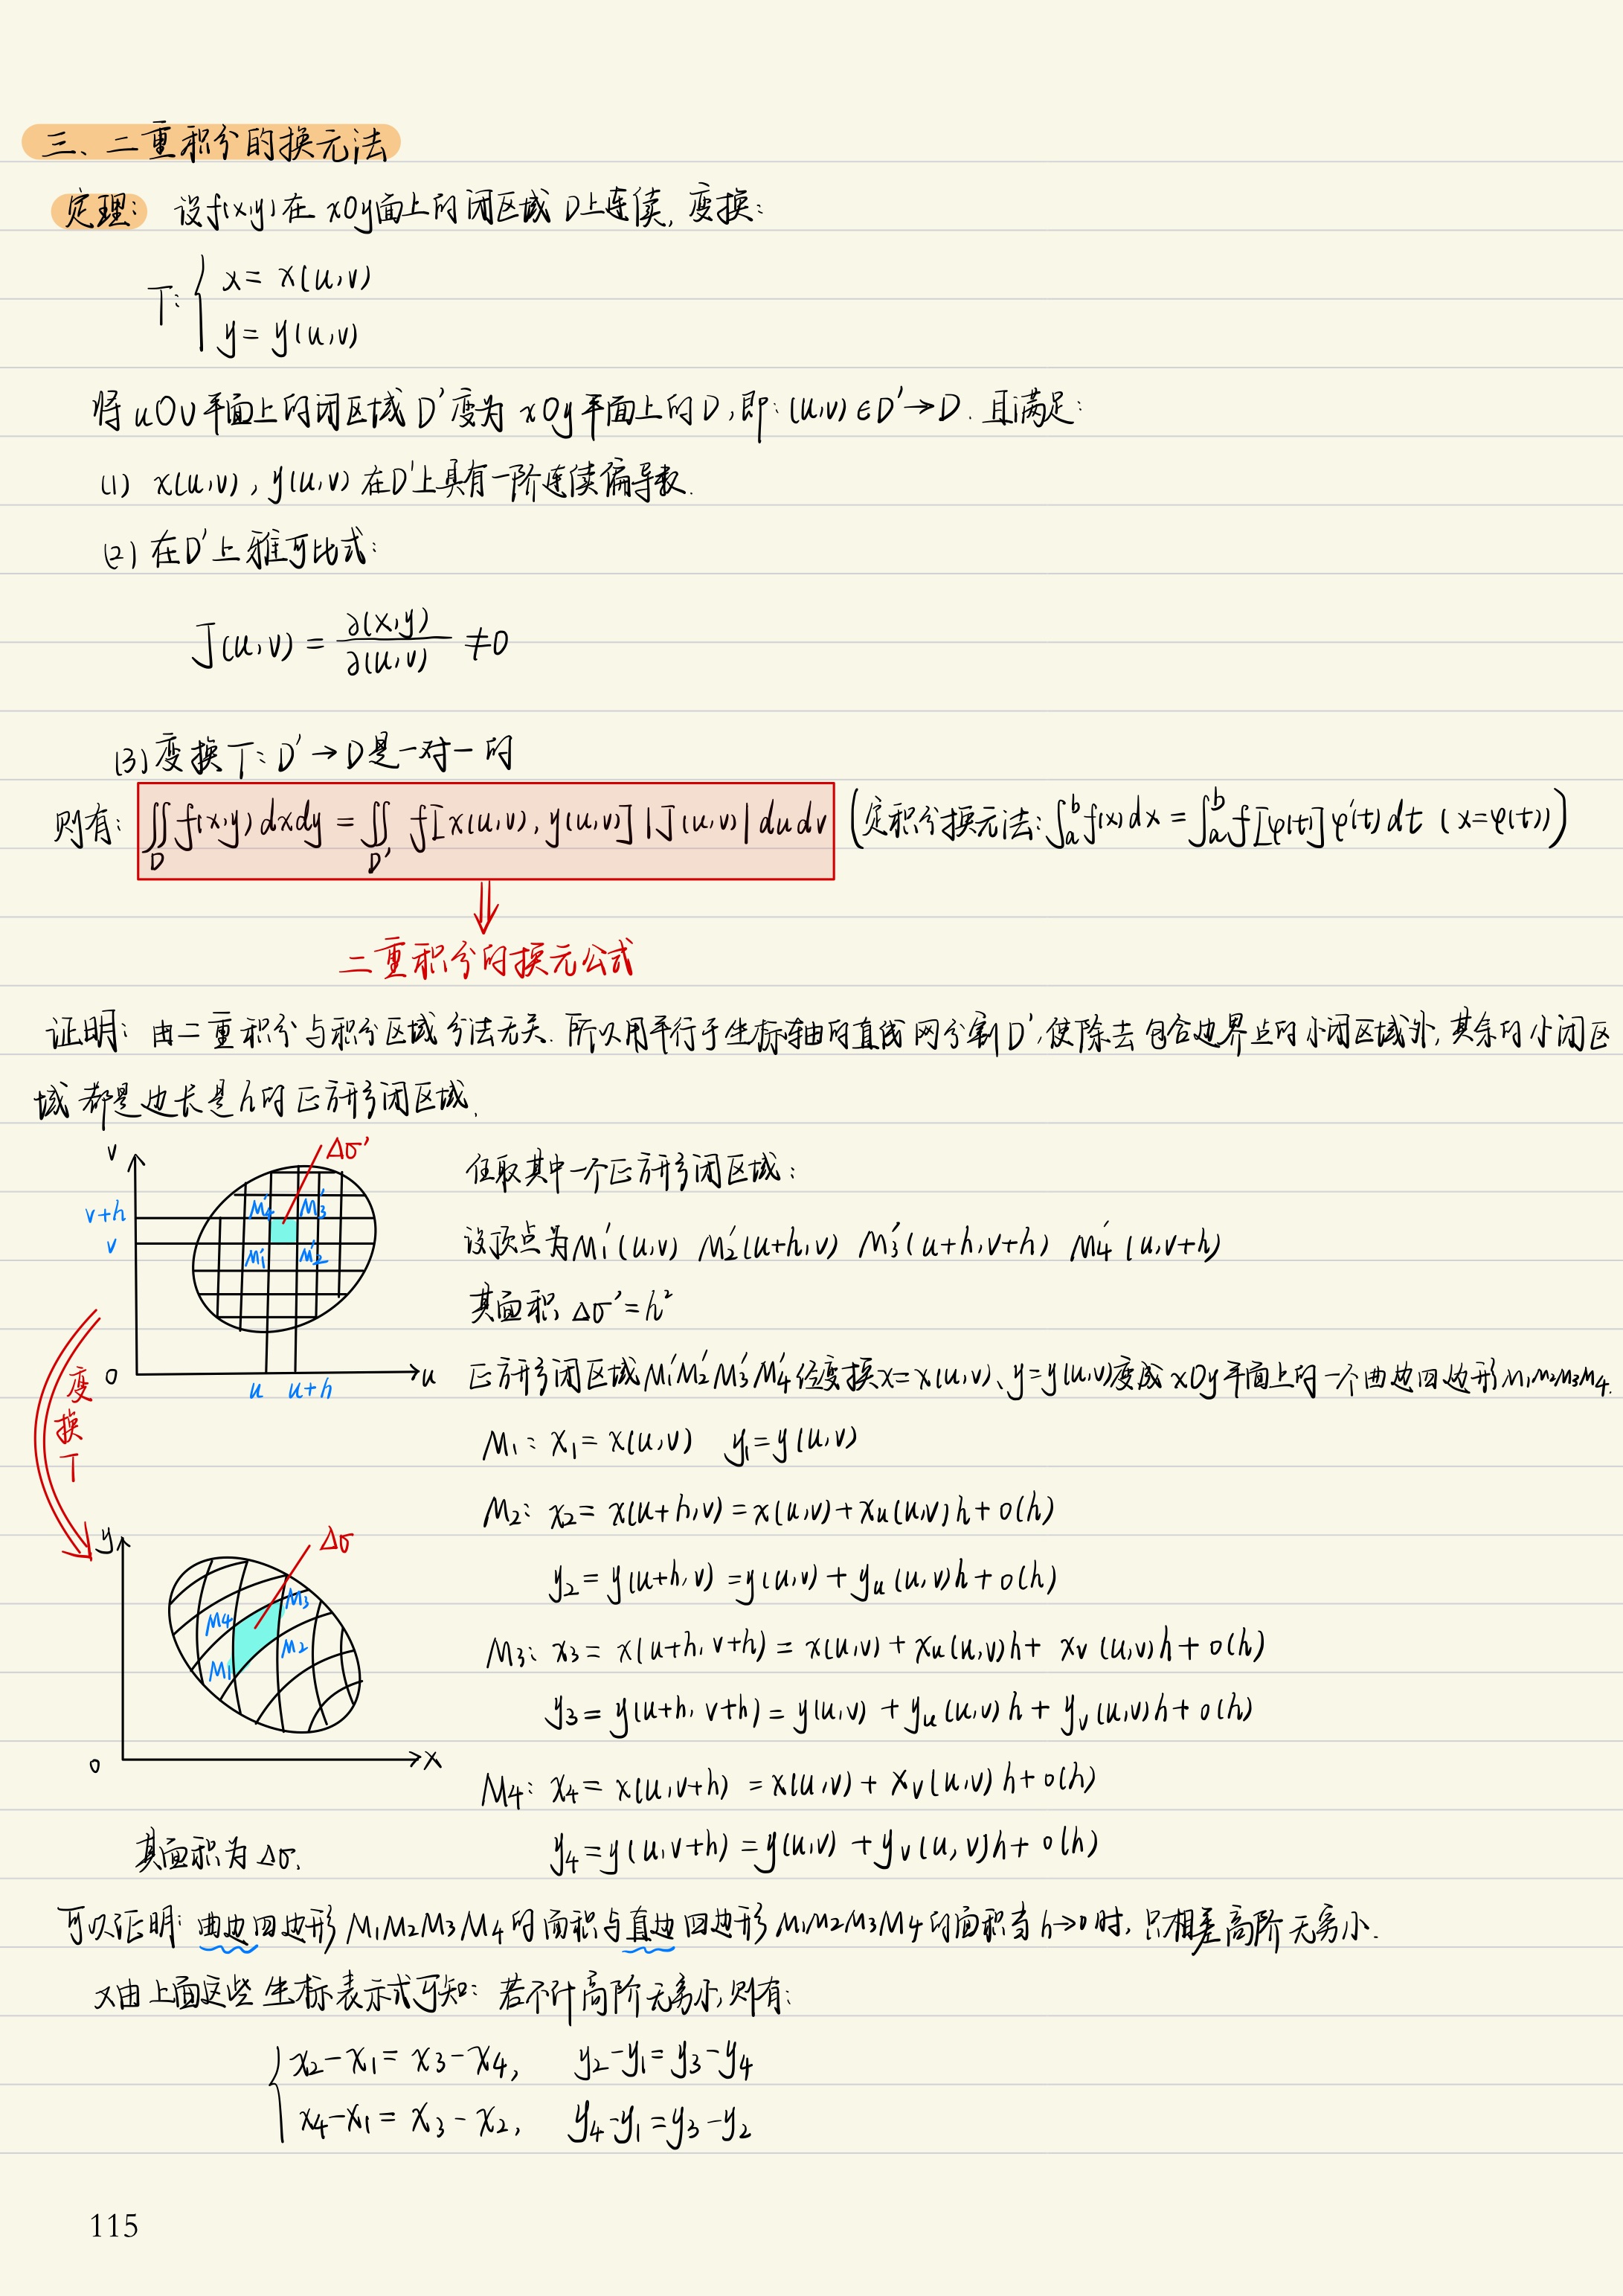 三、二重积分的换元法
定理: 设f(x,y)在xOy面上的闭区域D上连续, 变换:
T: { x = x(u,v)
y = y(u,v)
将uOv平面上的闭区域D'变为xOy平面上的D, 即: (u,v)∈D'→D. 且满足:
(1) x(u,v), y(u,v)在D'上具有一阶连续偏导数.
(2) 在D'上雅可比式:
J(u,v) = ∂(x,y)/∂(u,v) ≠ 0
(3) 变换T: D'→D是一对一的
则有: ∬_D f(x,y)dxdy = ∬_D' f[x(u,v), y(u,v)] |J(u,v)| du dv (定积分换元法: ∫_a^b f(x)dx = ∫_a^b f[φ(t)]φ'(t)dt (x=φ(t)))
⇓
二重积分的换元公式
证明: 由二重积分与积分区域分法无关. 所以用平行于坐标轴的直线网分割D', 使除去包含边界点的小闭区域外, 其余的小闭区
域都是边长是h的正方形闭区域.
v Δσ'
v+h
v
M4' M3'
M1' M2'
0 u u+h u
任取其中一个正方形闭区域:
设顶点为M1'(u,v) M2'(u+h,v) M3'(u+h,v+h) M4'(u,v+h)
其面积Δσ'=h²
正方形闭区域M1'M2'M3'M4'经变换x=x(u,v)、y=y(u,v)变成xOy平面上的一个曲边四边形M1M2M3M4.
变换T
M1: x1=x(u,v) y1=y(u,v)
M2: x2=x(u+h,v)=x(u,v)+xu(u,v)h+o(h)
y2=y(u+h,v)=y(u,v)+yu(u,v)h+o(h)
M3: x3=x(u+h,v+h)=x(u,v)+xu(u,v)h+xv(u,v)h+o(h)
y3=y(u+h,v+h)=y(u,v)+yu(u,v)h+yv(u,v)h+o(h)
M4: x4=x(u,v+h)=x(u,v)+xv(u,v)h+o(h)
y4=y(u,v+h)=y(u,v)+yv(u,v)h+o(h)
y Δσ
M4 M3
M1 M2
0 x
其面积为Δσ.
可以证明: 曲边四边形M1M2M3M4的面积与直边四边形M1M2M3M4的面积当h→0时, 只相差高阶无穷小.
又由上面这些坐标表示式可知: 若不计高阶无穷小, 则有:
{ x2-x1=x3-x4, y2-y1=y3-y4
x4-x1=x3-x2, y4-y1=y3-y2
115